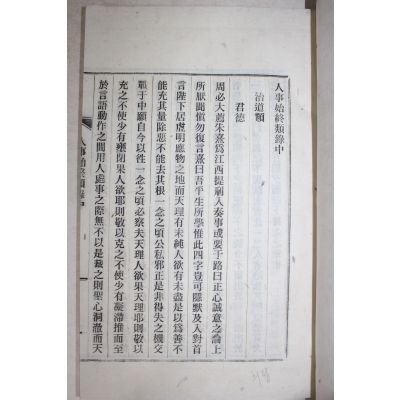 人事始終類錄中
治道類
君德
周必大薦朱熹爲江西提刑入奏事或要于路曰正心誠意之論上
所厭聞愼勿復言熹曰吾平生所學惟此四字豈可隱默及入對首
言陛下居虛明應物之地而天理有未純人欲有未盡是以爲善不
能充其量除惡不能去其根一念之頃公私邪正是非得失之機交
戰于中願自今以徃一念之頃必察夫天理人欲果天理耶則敬以
充之不使少有壅閉果人欲耶則敬以克之不使少有凝滯推而至
於言語動作之間用人處事之際無不以是裁之則聖心洞澈而天
人事始終類錄中